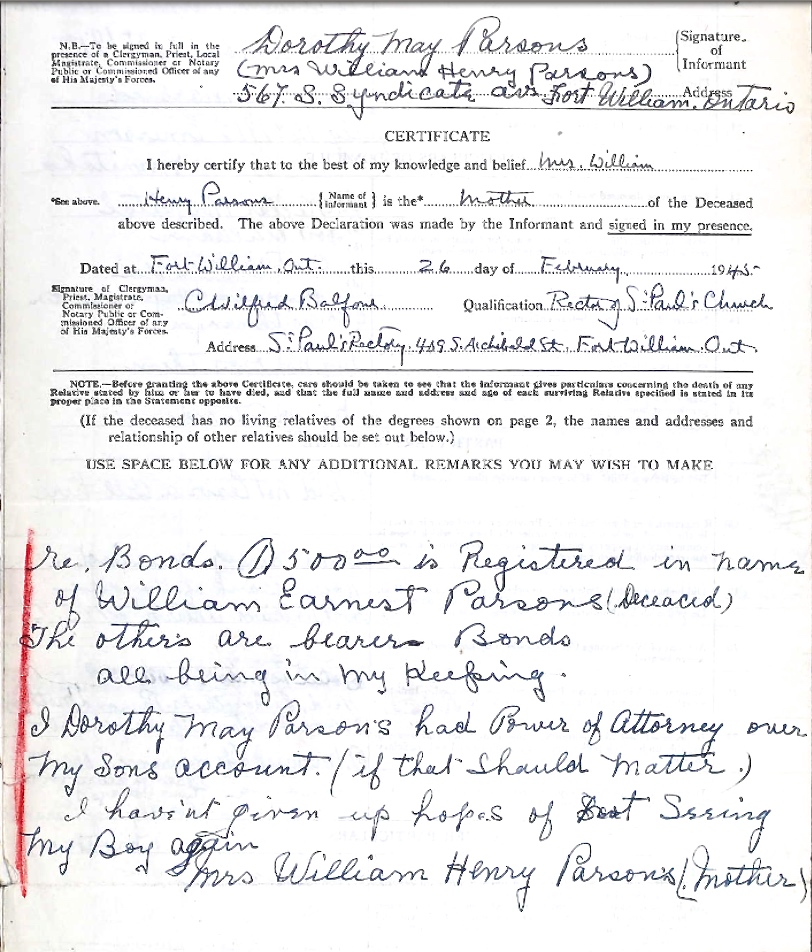 N.B.—To be signed in full in the
presence of a Clergyman, Priest, Local
Magistrate, Commissioner or Notary
Public or Commissioned Officer of any
of His Majesty's Forces.
Dorothy May Parsons
(Mrs William Henry Parsons)
Signature
of
Informant
567. S. Syndicate ave Fort William. Ontario
Address
CERTIFICATE
I hereby certify that to the best of my knowledge and belief Mrs. William
*See above. Henry Parsons {Name of Informant} is the* Mother of the Deceased
above described. The above Declaration was made by the Informant and signed in my presence.
Dated at Fort William, Ont. this 26 day of February 1945
Signature of Clergyman,
Priest, Magistrate,
Commissioner or
Notary Public or Com-
missioned Officer of any
of His Majesty's Forces.
C Wilfred Balfour Qualification Rector of St. Paul's Church
Address St. Paul's Rectory. 409 S. Archibald St. Fort William. Ont.
NOTE.—Before granting the above Certificate, care should be taken to see that the informant gives particulars concerning the death of any
Relative stated by him or her to have died, and that the full name and address and age of each surviving Relative specified is stated in its
proper place in the Statement opposite.
(If the deceased has no living relatives of the degrees shown on page 2, the names and addresses and
relationship of other relatives should be set out below.)
USE SPACE BELOW FOR ANY ADDITIONAL REMARKS YOU MAY WISH TO MAKE
re. Bonds. (1) 500 00 is Registered in name
of William Earnest Parsons (Deceaced)
The others are bearers Bonds
all being in my keeping.
I Dorothy May Parson's had Power of Attorney over
my Sons account. (if that Should Matter.)
I have'nt given up hopes of Seeing
My Boy again
Mrs William Henry Parson's (Mother)